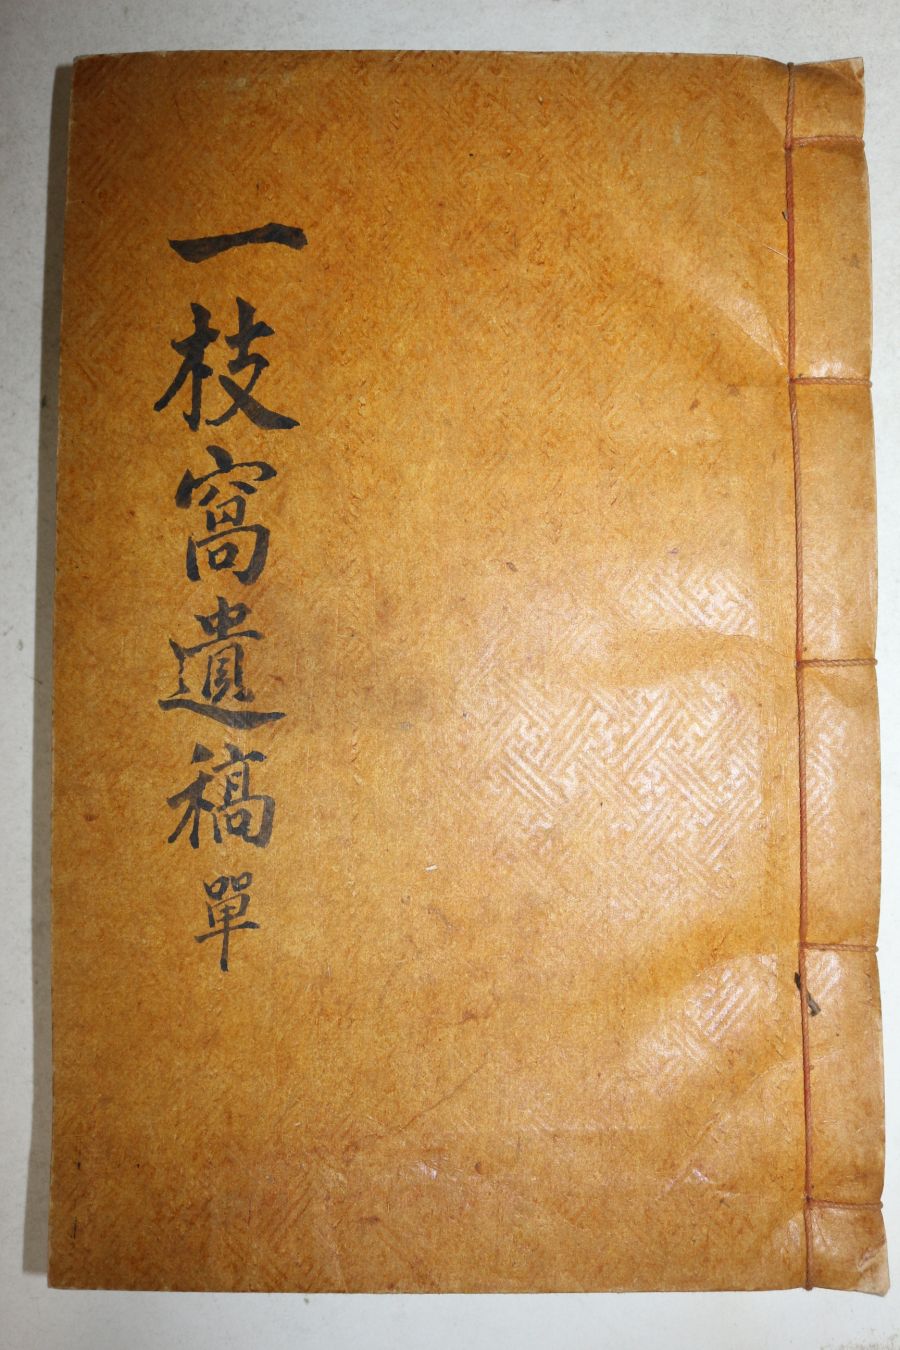 一枝窩遺稿 單